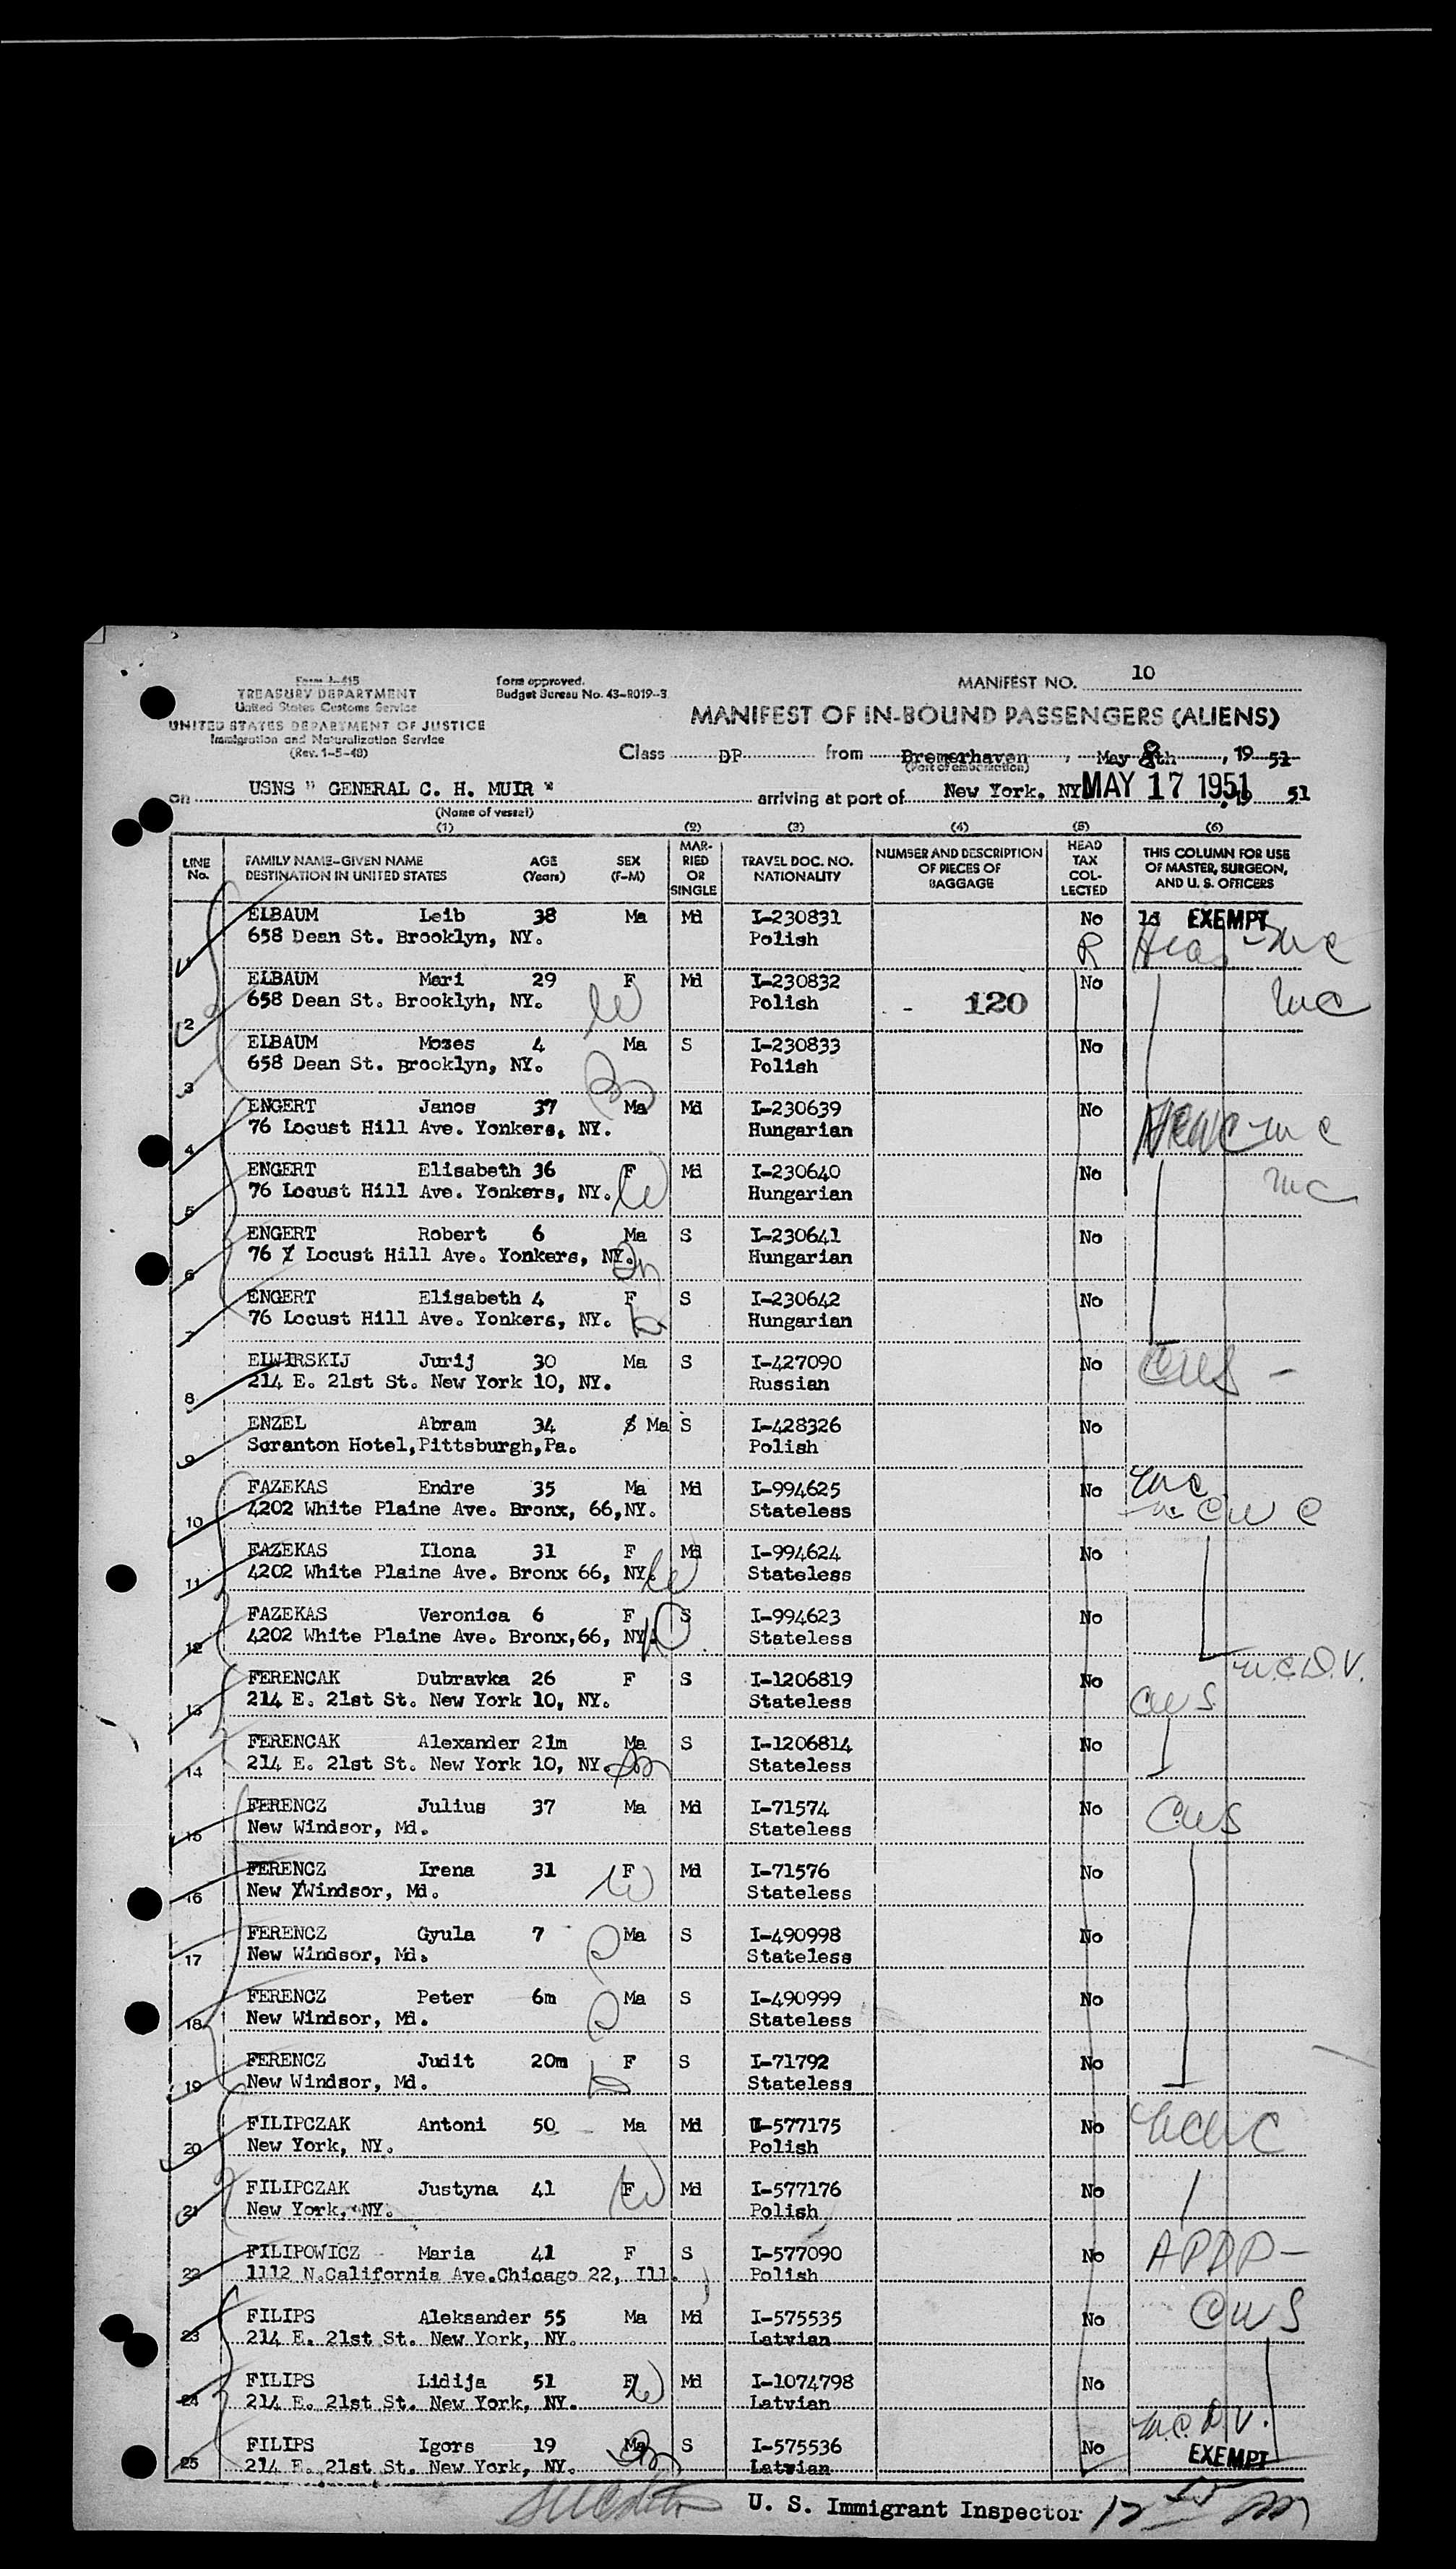 Form I-415
TREASURY DEPARTMENT
United States Customs Service
UNITED STATES DEPARTMENT OF JUSTICE
Immigration and Naturalization Service
(Rev. 1-5-48)
Form approved.
Budget Bureau No. 43-R019-3
MANIFEST NO. 10
MANIFEST OF IN-BOUND PASSENGERS (ALIENS)
Class DP from Bremerhaven, May 8th, 19 51
(Port of embarkation)
on USNS " GENERAL C. H. MUIR " arriving at port of New York. NY MAY 17 1951 , 19 51
(Name of vessel)
(1) (2) (3) (4) (5) (6)
LINE No. FAMILY NAME-GIVEN NAME DESTINATION IN UNITED STATES AGE (Years) SEX (F-M) MARRIED OR SINGLE TRAVEL DOC. NO. NATIONALITY NUMBER AND DESCRIPTION OF PIECES OF BAGGAGE HEAD TAX COLLECTED THIS COLUMN FOR USE OF MASTER, SURGEON, AND U. S. OFFICERS
1 ELBAUM Leib 38 Ma Md I-230831 No 1d EXEMPT
658 Dean St. Brooklyn, NY. Polish R Hias - mc
2 ELBAUM Mari 29 F Md I-230832 No
658 Dean St. Brooklyh, NY. W Polish - 120 mc
3 ELBAUM Mozes 4 Ma S I-230833 No
658 Dean St. Brooklyn, NY. Polish
4 ENGERT Janos 37 Ma Md I-230639 No
76 Locust Hill Ave. Yonkers, NY. Hungarian NCWC - mc
5 ENGERT Elisabeth 36 F Md I-230640 No
76 Locust Hill Ave. Yonkers, NY. W Hungarian mc
6 ENGERT Robert 6 Ma S I-230641 No
76 Locust Hill Ave. Yonkers, NY. Hungarian
7 ENGERT Elisabeth 4 F S I-230642 No
76 Locust Hill Ave. Yonkers, NY. D Hungarian
8 ELWIRSKIJ Jurij 30 Ma S I-427090 No CWS -
214 E. 21st St. New York 10, NY. Russian
9 ENZEL Abram 34 Ma S I-428326 No
Scranton Hotel,Pittsburgh,Pa. Polish
10 FAZEKAS Endre 35 Ma Md I-994625 No mc
4202 White Plaine Ave. Bronx, 66,NY. Stateless NCWC
11 FAZEKAS Ilona 31 F Md I-994624 No
4202 White Plaine Ave. Bronx 66, NY. W Stateless
12 FAZEKAS Veronica 6 F S I-994623 No
4202 White Plaine Ave. Bronx,66, NY. D Stateless
13 FERENCAK Dubravka 26 F S I-1206819 No m.c.D.V.
214 E. 21st St. New York 10, NY. Stateless CWS
14 FERENCAK Alexander 21m Ma S I-1206814 No
214 E. 21st St. New York 10, NY. Stateless
15 FERENCZ Julius 37 Ma Md I-71574 No CWS
New Windsor, Md. Stateless
16 FERENCZ Irena 31 F Md I-71576 No
New Windsor, Md. W Stateless
17 FERENCZ Gyula 7 Ma S I-490998 No
New Windsor, Md. Stateless
18 FERENCZ Peter 6m Ma S I-490999 No
New Windsor, Md. Stateless
19 FERENCZ Judit 20m F S I-71792 No
New Windsor, Md. D Stateless
20 FILIPCZAK Antoni 50 Ma Md I-577175 No NCWC
New York, NY. Polish
21 FILIPCZAK Justyna 41 F Md I-577176 No
New York, NY. W Polish
22 FILIPOWICZ Maria 41 F S I-577090 No APDP -
1112 N.California Ave.Chicago 22, Ill. Polish
23 FILIPS Aleksander 55 Ma Md I-575535 No CWS
214 E. 21st St. New York, NY. Latvian
24 FILIPS Lidija 51 F W Md I-1074798 No
214 E. 21st St. New York, NY. Latvian
25 FILIPS Igors 19 Ma S I-575536 No m.c.D.V.
214 E. 21st St. New York, NY. Latvian EXEMPT
U. S. Immigrant Inspector